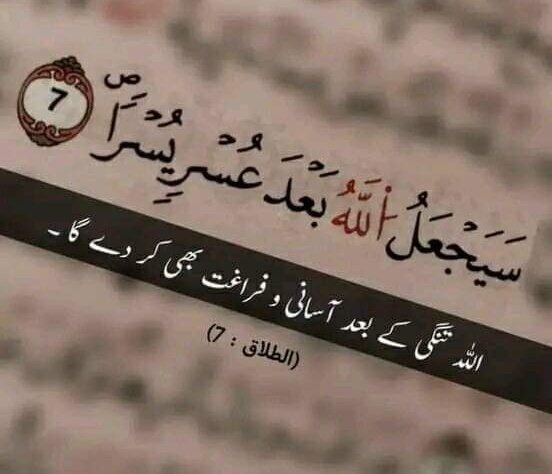 سَيَجْعَلُ ٱللَّهُ بَعْدَ عُسْرٍ يُسْرًا ۖ 7
اللہ تنگی کے بعد آسانی و فراغت بھی کر دے گا ۔
(الطلاق : 7)